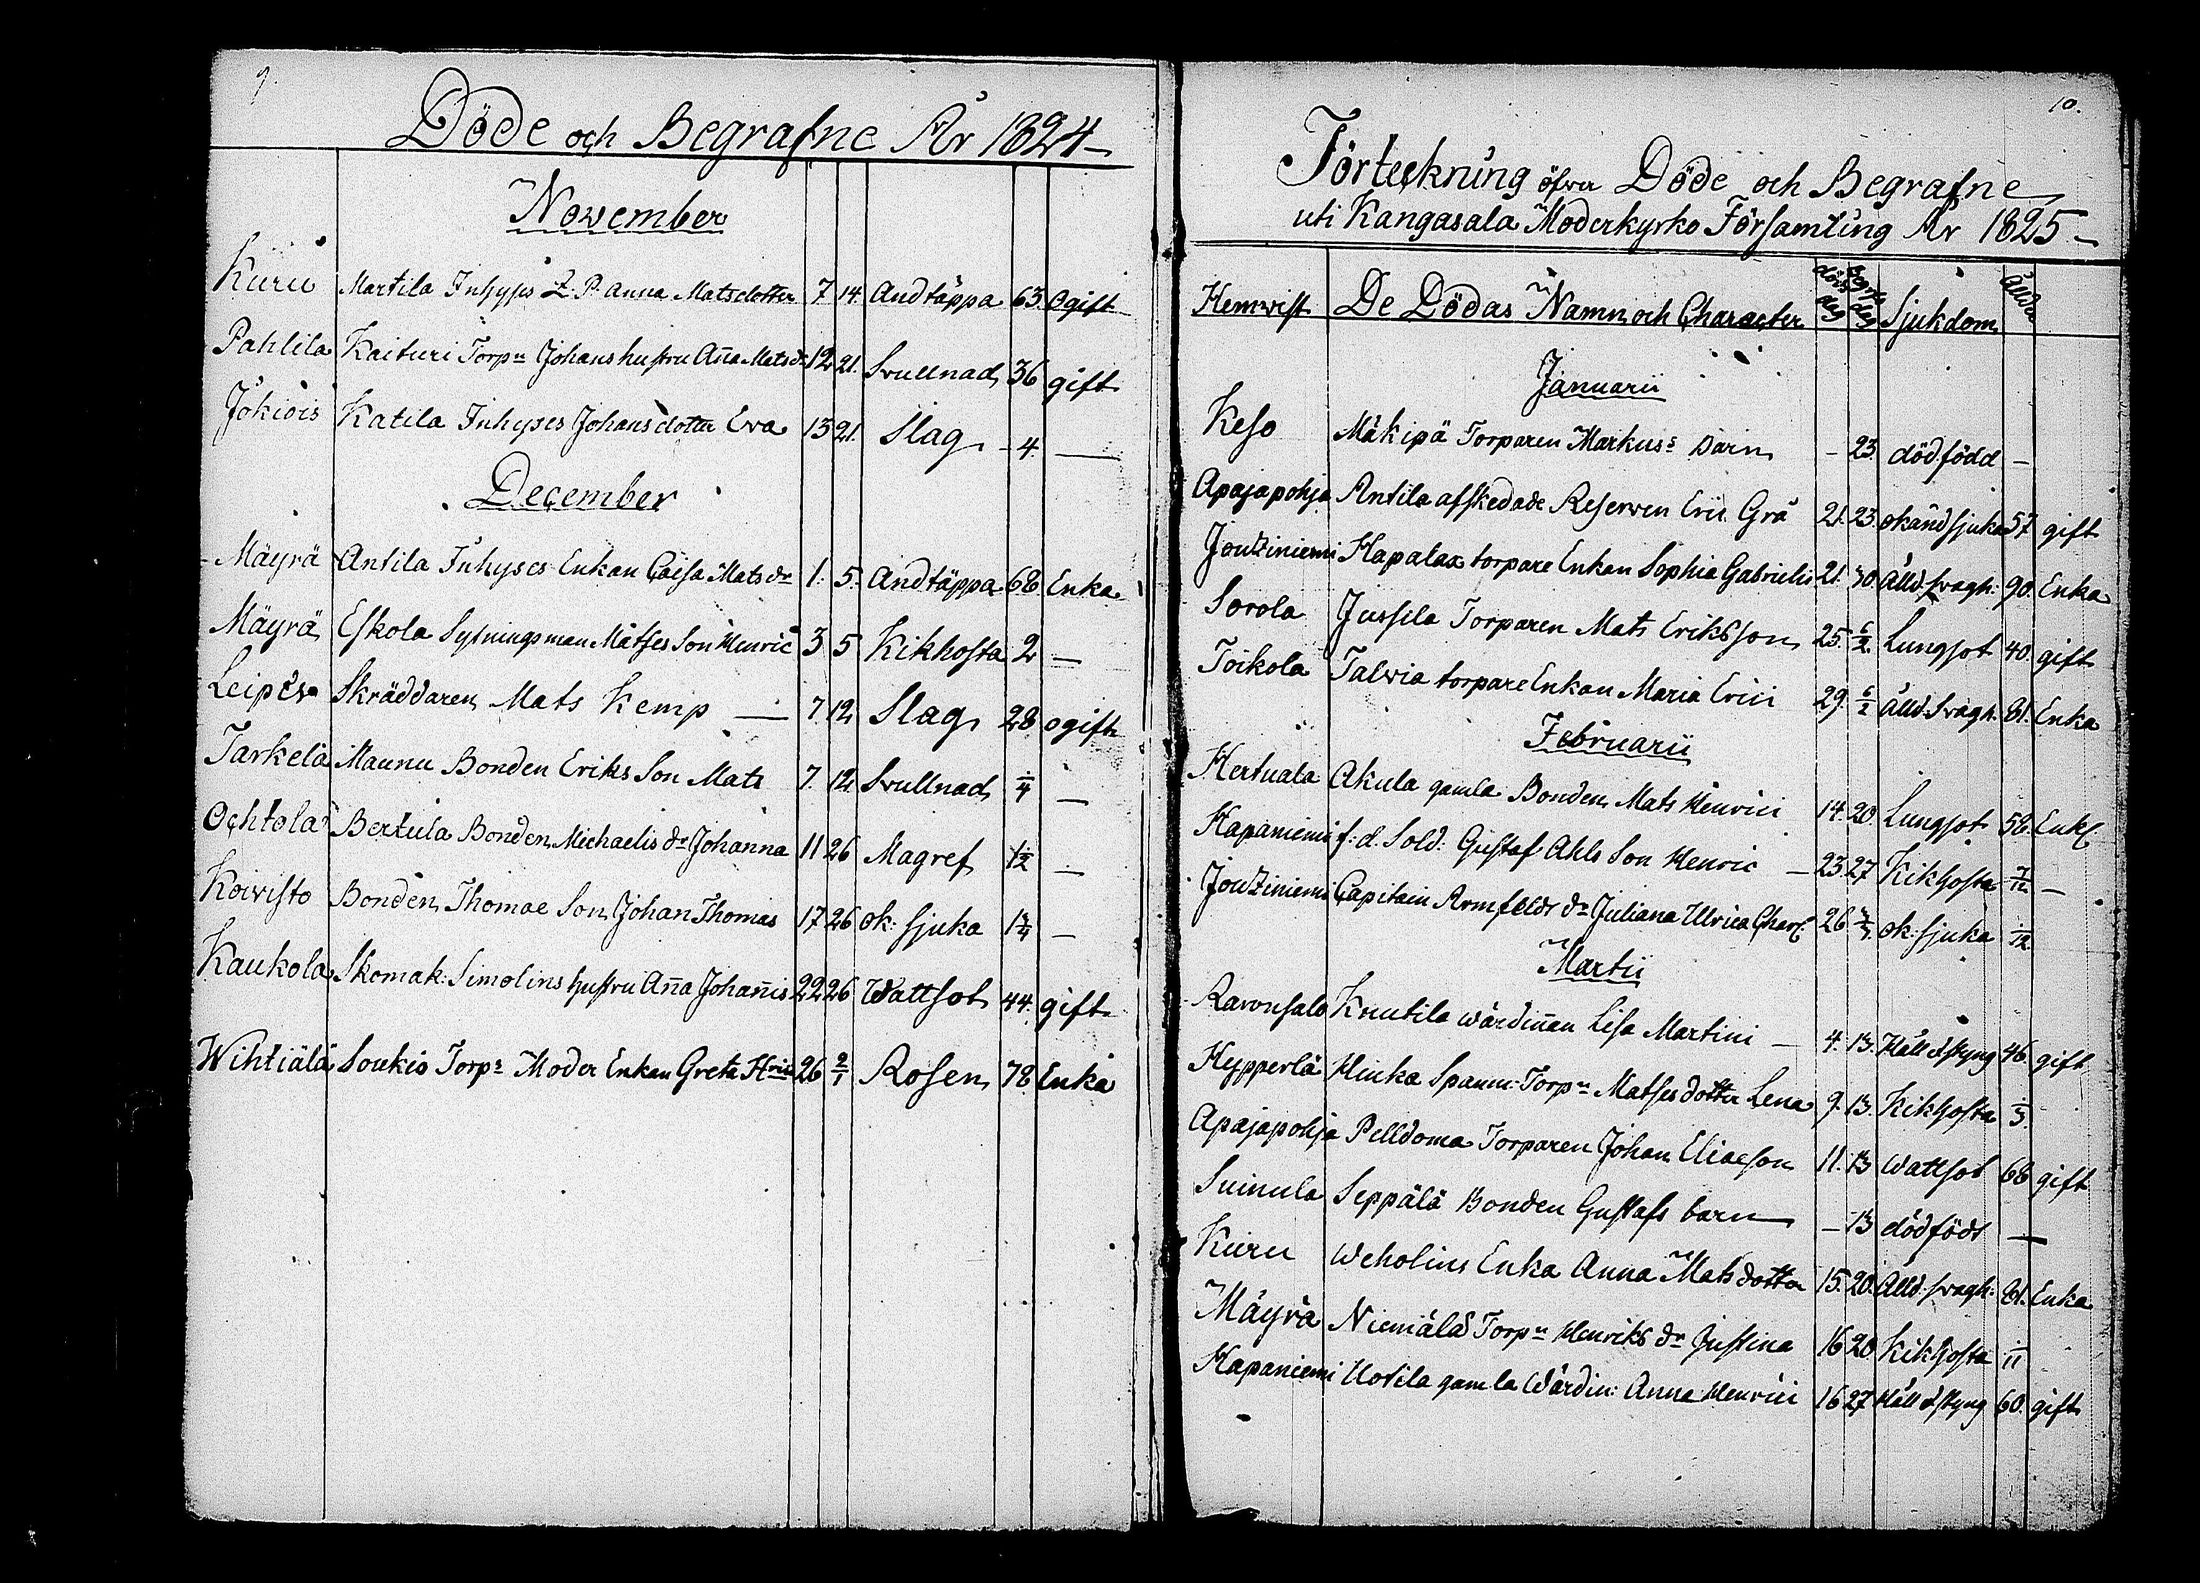 9.
Döde och Begrafne År 1824
November
Kuru Martila Inhyses L. P. Anna Matsdotter 7 14 Andtäppa 63 Ogift
Pahlila Kaituri Torp:n Johans hustru Aña Mats d:r 12 21. Svullnad 36 gift
Jokiois Katila Inhyses Johans dotter Eva 13 21. Slag - 4. —
December
Mäyrä Antila Inhyses Enkan Caisa Mats d:r 1. 5. Andtäppa 68 Enka
Mäyrä Eskola Sytningsman Matses Son Henric 3 5 Kikhosta 2 —
Leipis Skräddaren Mats Kemp — 7. 12 Slag 28 ogift
Tarkela Maunu Bonden Eriks Son Mats 7. 12 Svullnad 1/4 —
Ochtola Bertula Bonden Michaelis d:r Johanna 11 26 Magref 1/2 —
Koivisto Bonden Thomae Son Johan Thomas 17 26 ok: sjuka 1 1/4 —
Kaukola Skomak: Simolins hustru Aña Johañis 22 26 Wattsot 44. gift
Wihtiälä Soukio Torp:s Moder Enkan Greta H:rici 26 2/1 Rosen 78 Enka
10.
Förteckning öfver Döde och Begrafne
uti Kangasala Moderkyrko Församling År 1825
Hemvist De Dödas Namn och Character döds dag begrafn dag Sjukdom Ålder
Januarii
Keso Mäkipä Torparen Markus:s Barn - 23 dödfödd -
Apajapohja Antila afskedade Reserven Eric Grå 21. 23. okänd sjuka 57 gift
Joutziniemi Hapalax torpare Enkan Sophia Gabrielis 21. 30. Ålld. svagh. 90. Enka
Sorola Jussila Torparen Mats Eriksson 25. 6/2. Lungsot 40. gift
Toikola Talvia torpare Enkan Maria Erici 29. 6/2 Ålld. Svagh. 81. Enka
Februarii
Hertuala Akula gamla Bonden Mats Henrici 14. 20. Lungsot 58. Enkl.
Hapaniemi f: d. Sold: Gustaf Ahls Son Henric — 23 27 Kikhosta 7/12 —
Joutziniemi Capitain Armfeldts d:r Juliana Ulrica Charl. 26 ok: sjuka 1/12
Martii
Ravonsalo Knutila wärdiñan Lisa Martini — 4. 13. Håll o styng 46. gift
Hypperlä Hinka Spanm: Torp:n Matses dotter Lena 9. 13. Kikhosta
Apajapohja Pelldoma Torparen Johan Eliaeson 11. 13 Wattsot 68 gift
Suinula Seppälä Bonden Gustafs barn — - 13 dödfödt —
Kuru Weholins Enka Anna Matsdotter 15. 20. Ålld. svagh: 81. Enka
Mäyrä Niemälä Torp:n Henriks d:r Justina 16 20 Kikhosta 1/11
Hapaniemi Uotila gamla Wärdin: Anna Henrici 16 27 Håll o styng 60. gift